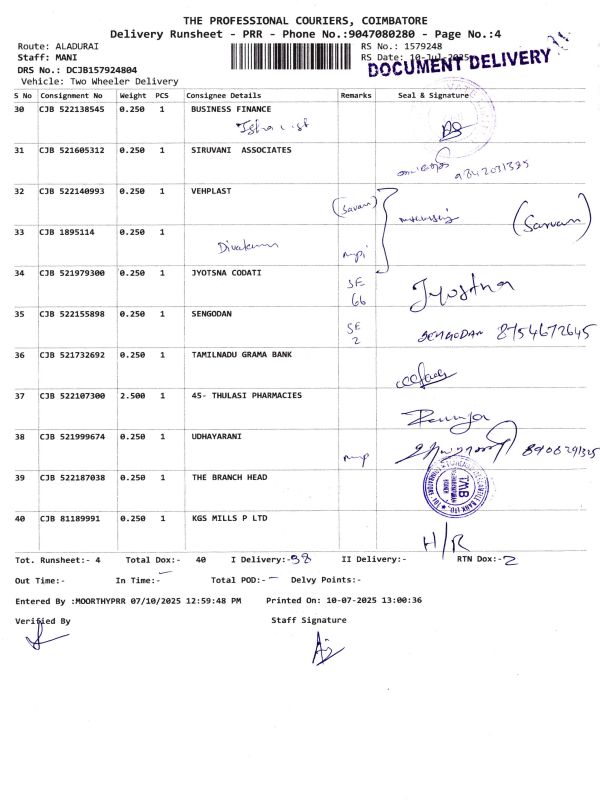 THE PROFESSIONAL COURIERS, COIMBATORE
Delivery Runsheet - PRR - Phone No.:9047080280 - Page No.:4
Route: ALADURAI RS No.: 1579248
Staff: MANI RS Date: 10-Jul-2025
DRS No.: DCJB157924804 DOCUMENT DELIVERY
Vehicle: Two Wheeler Delivery
S No Consignment No Weight PCS Consignee Details Remarks Seal & Signature
30 CJB 522138545 0.250 1 BUSINESS FINANCE
31 CJB 521605312 0.250 1 SIRUVANI ASSOCIATES
9842031335
32 CJB 522140993 0.250 1 VEHPLAST
(Sarvan) (Sarvan)
33 CJB 1895114 0.250 1
Divakaran
34 CJB 521979300 0.250 1 JYOTSNA CODATI
SE
66 Jyostna
35 CJB 522155898 0.250 1 SENGODAN
SE
2 SENGODAN 8754672645
36 CJB 521732692 0.250 1 TAMILNADU GRAMA BANK
37 CJB 522107300 2.500 1 45- THULASI PHARMACIES
38 CJB 521999674 0.250 1 UDHAYARANI
39 CJB 522187038 0.250 1 THE BRANCH HEAD
TMB
40 CJB 81189991 0.250 1 KGS MILLS P LTD
H/R
Tot. Runsheet:- 4 Total Dox:- 40 I Delivery:-38 II Delivery:- RTN Dox:-2
Out Time:- In Time:- Total POD:- Delvy Points:-
Entered By :MOORTHYPRR 07/10/2025 12:59:48 PM Printed On: 10-07-2025 13:00:36
Verified By Staff Signature